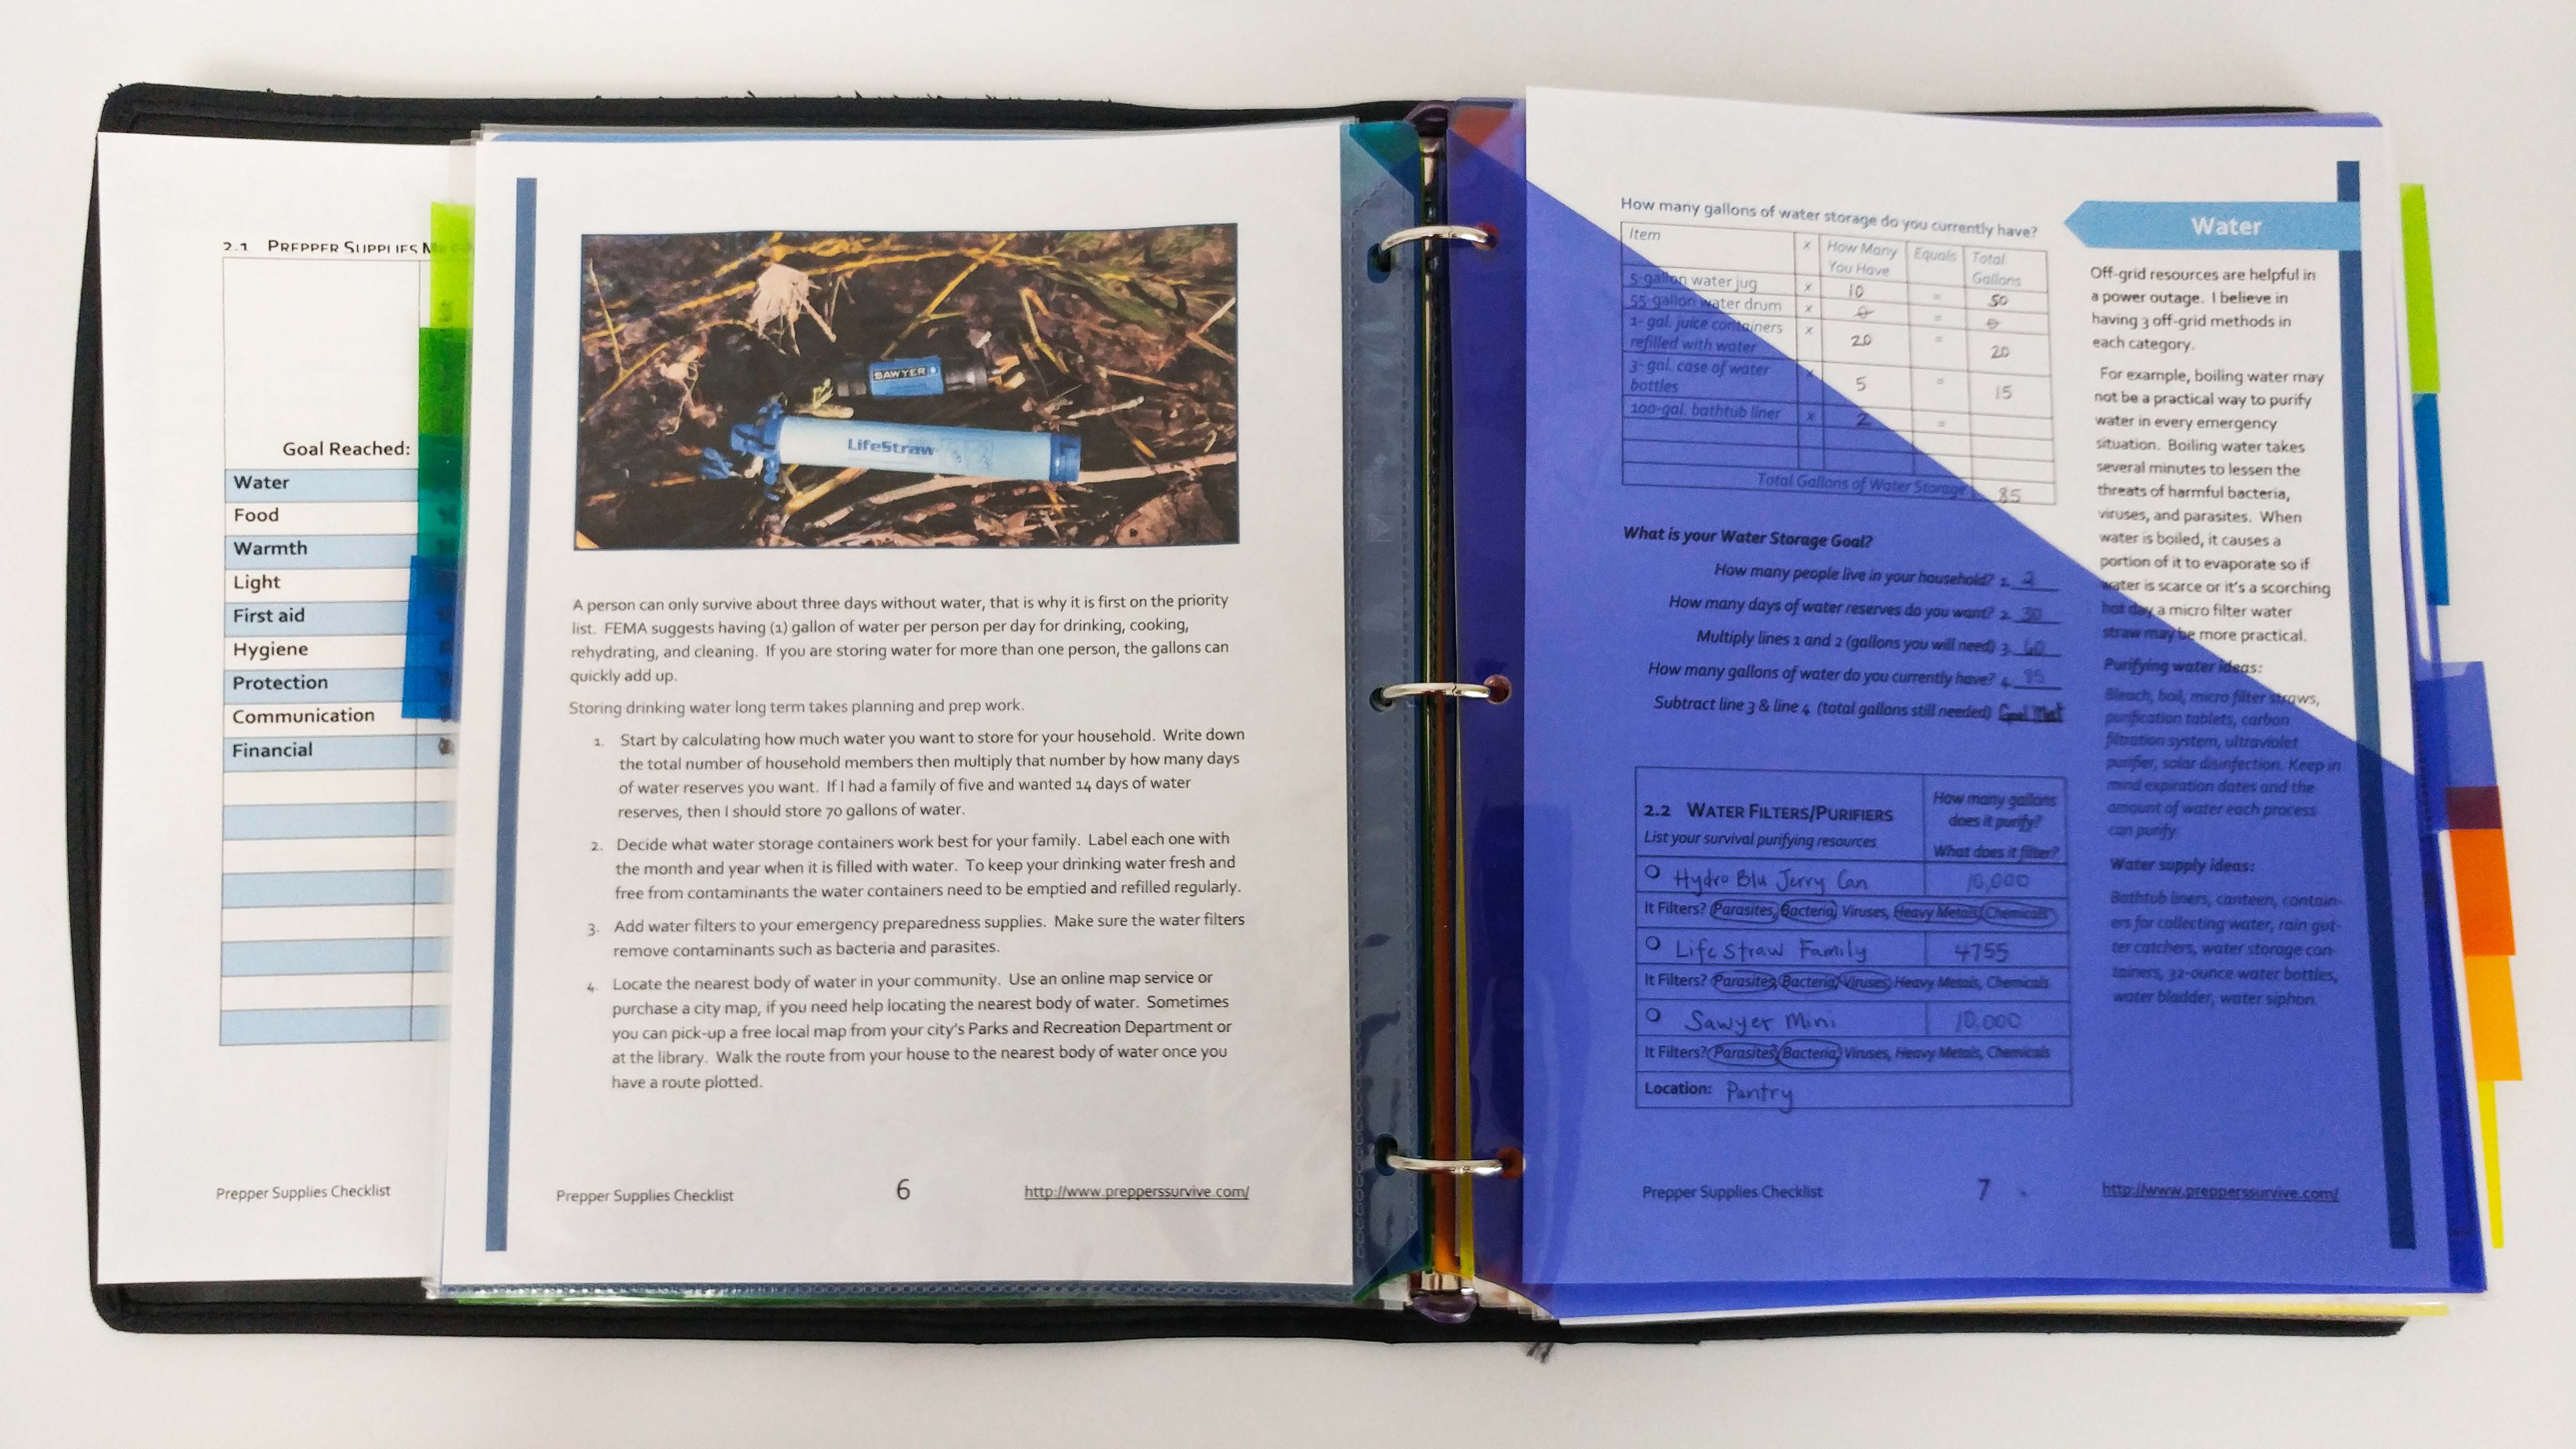 2.1 PREPPER SUPPLIES
Goal Reached:
Water
Food
Warmth
Light
First aid
Hygiene
Protection
Communication
Financial
Prepper Supplies Checklist
SAWYER
LifeStraw
A person can only survive about three days without water, that is why it is first on the priority
list. FEMA suggests having (1) gallon of water per person per day for drinking, cooking,
rehydrating, and cleaning. If you are storing water for more than one person, the gallons can
quickly add up.
Storing drinking water long term takes planning and prep work.
1. Start by calculating how much water you want to store for your household. Write down
the total number of household members then multiply that number by how many days
of water reserves you want. If I had a family of five and wanted 14 days of water
reserves, then I should store 70 gallons of water.
2. Decide what water storage containers work best for your family. Label each one with
the month and year when it is filled with water. To keep your drinking water fresh and
free from contaminants the water containers need to be emptied and refilled regularly.
3. Add water filters to your emergency preparedness supplies. Make sure the water filters
remove contaminants such as bacteria and parasites.
4. Locate the nearest body of water in your community. Use an online map service or
purchase a city map, if you need help locating the nearest body of water. Sometimes
you can pick-up a free local map from your city's Parks and Recreation Department or
at the library. Walk the route from your house to the nearest body of water once you
have a route plotted.
Prepper Supplies Checklist 6 http://www.prepperssurvive.com/
How many gallons of water storage do you currently have?
Item x How Many Equals Total
You Have Gallons
5-gallon water jug x 10 = 50
55-gallon water drum x 0 = 0
1- gal. juice containers x 20 = 20
refilled with water
3- gal. case of water x 5 = 15
bottles
100-gal. bathtub liner x 2 =
Total Gallons of Water Storage 85
What is your Water Storage Goal?
How many people live in your household? 1. 2
How many days of water reserves do you want? 2. 30
Multiply lines 1 and 2 (gallons you will need) 3. 60
How many gallons of water do you currently have? 4. 85
Subtract line 3 & line 4 (total gallons still needed) Goal Met
2.2 WATER FILTERS/PURIFIERS
List your survival purifying resources
How many gallons
does it purify?
What does it filter?
Hydro Blu Jerry Can 10,000
It Filters? Parasites, Bacteria, Viruses, Heavy Metals, Chemicals
Life Straw Family 4755
It Filters? Parasites, Bacteria, Viruses, Heavy Metals, Chemicals
Sawyer Mini 10,000
It Filters? Parasites, Bacteria, Viruses, Heavy Metals, Chemicals
Location: Pantry
Water
Off-grid resources are helpful in
a power outage. I believe in
having 3 off-grid methods in
each category.
For example, boiling water may
not be a practical way to purify
water in every emergency
situation. Boiling water takes
several minutes to lessen the
threats of harmful bacteria,
viruses, and parasites. When
water is boiled, it causes a
portion of it to evaporate so if
water is scarce or it's a scorching
hot day a micro filter water
straw may be more practical.
Purifying water ideas:
Bleach, boil, micro filter straws,
purification tablets, carbon
filtration system, ultraviolet
purifier, solar disinfection. Keep in
mind expiration dates and the
amount of water each process
can purify.
Water supply ideas:
Bathtub liners, canteen, contain-
ers for collecting water, rain gut-
ter catchers, water storage con-
tainers, 32-ounce water bottles,
water bladder, water siphon.
Prepper Supplies Checklist 7 http://www.prepperssurvive.com/